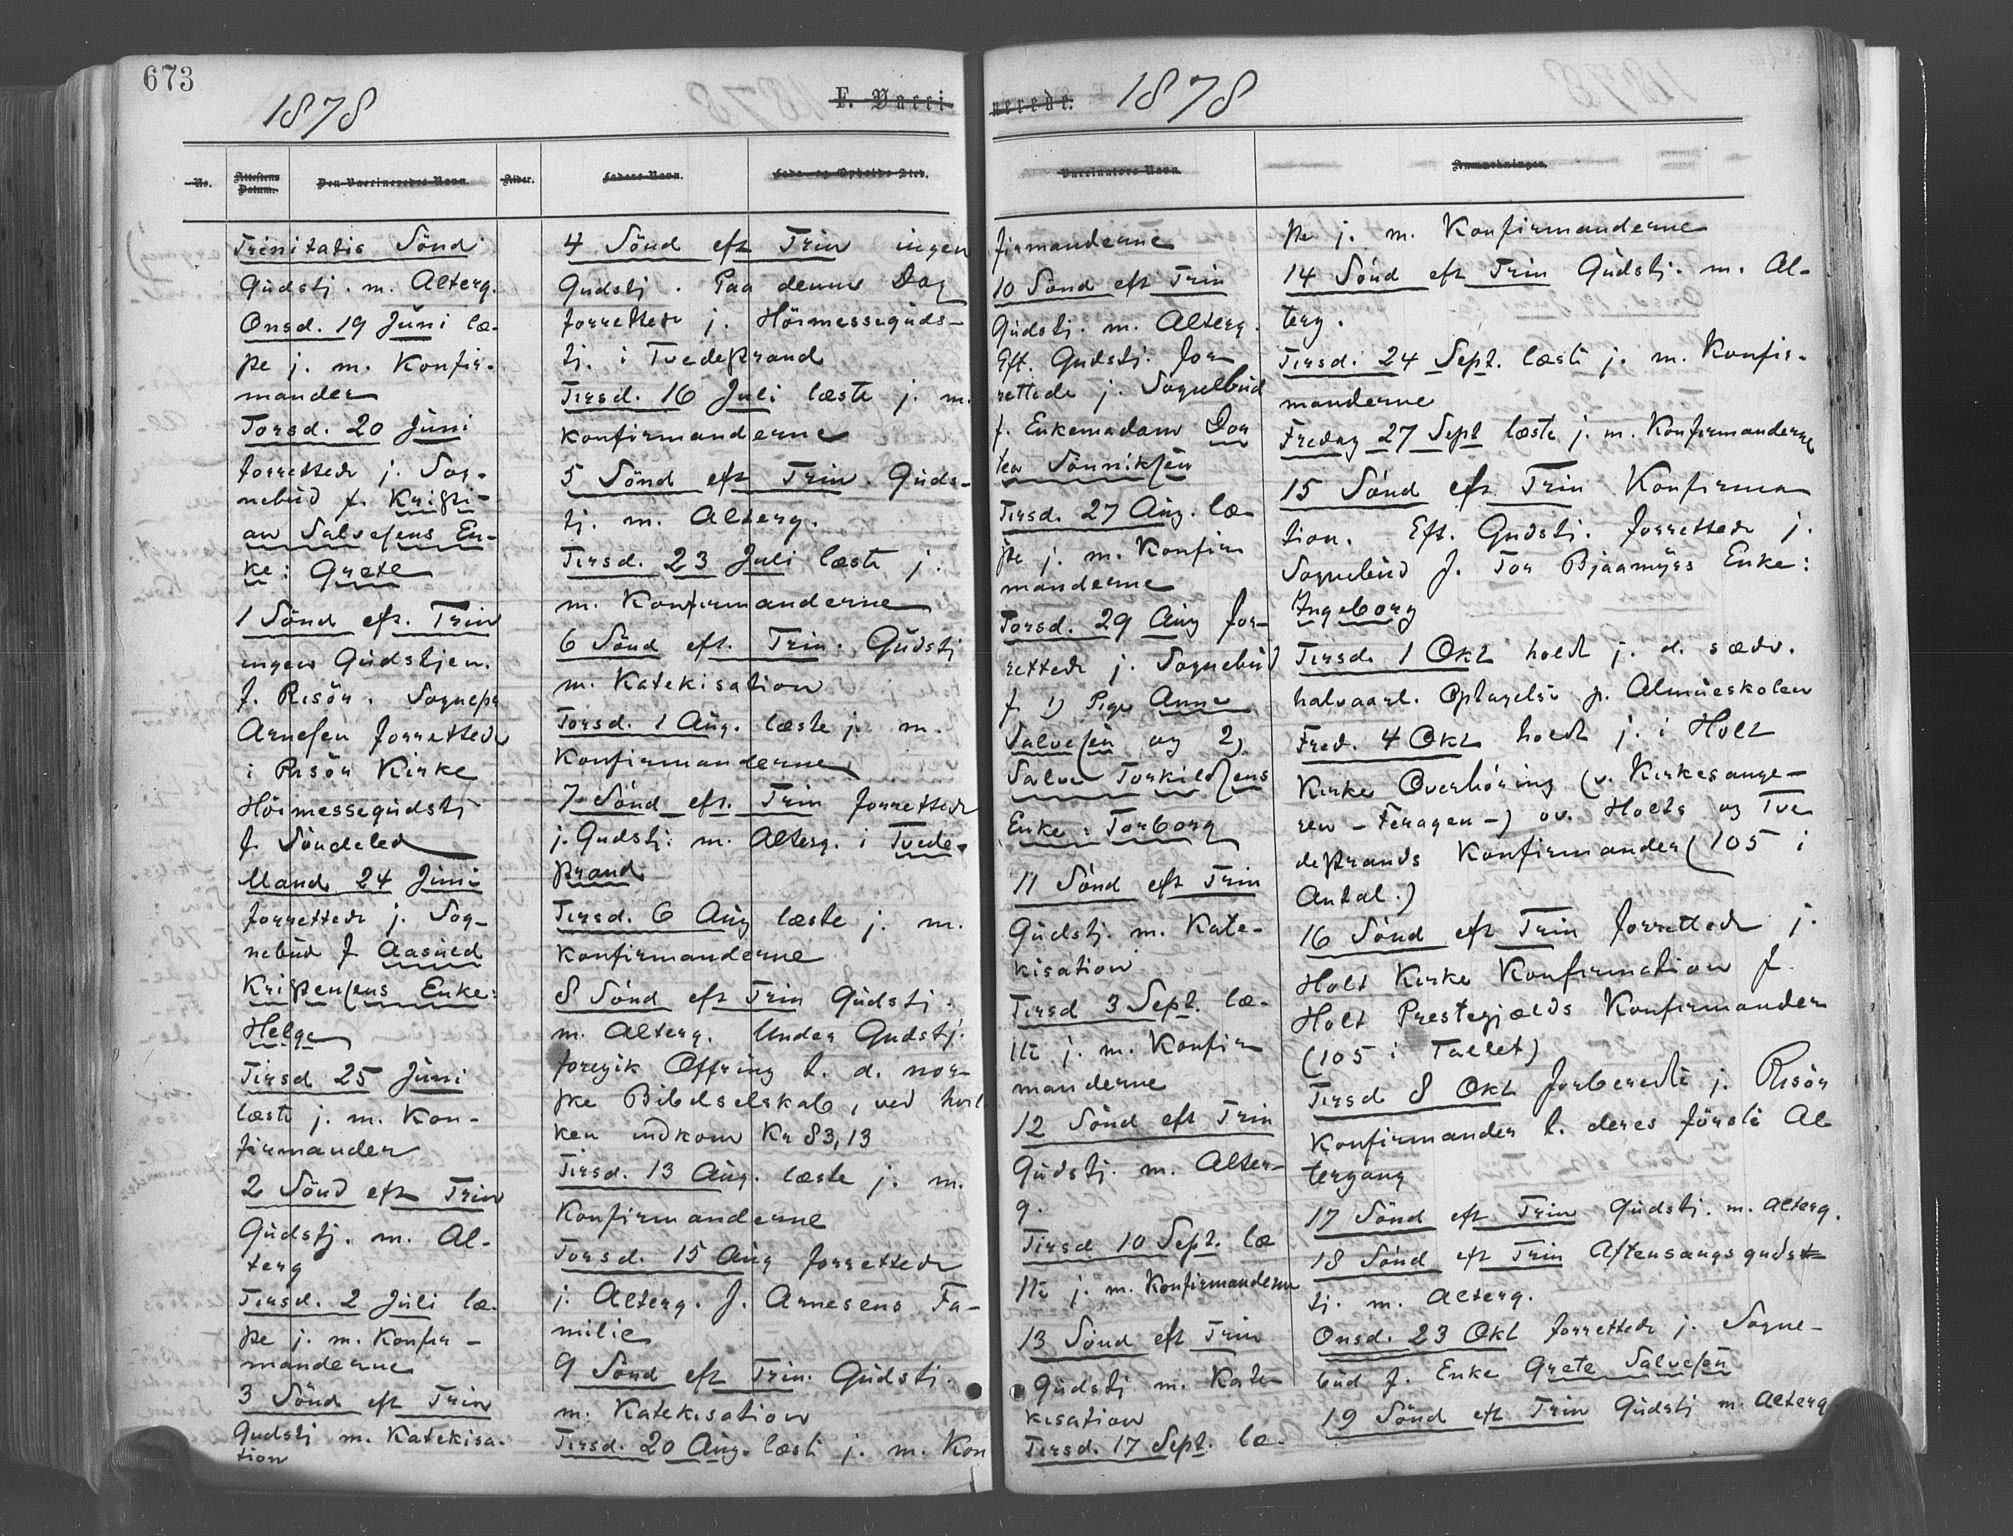 673
1878
F. Vacci-
No.
Attestens Datum.
Den Vaccineredes Navn.
Alder.
Faders Navn.
Føde- og Opholds-Sted.
Trinitatis Sönd
Gudstj. m. Alterg.
Onsd. 19 Juni læ-
ste j. m. Konfir-
mander
Torsd. 20 Juni
forrettede j. Sog-
nebud f. Kristi-
an Salvesens En-
ke: Grete
1 Sönd eft. Trin
ingen Gudstjen.
f. Risör. Sognepr
Arnesen forrettede
i Risör Kirke
Höimessegudstj
f. Söndeled
Mand 24 Juni
forrettede j. Sog-
nebud f Aasued
Kristensens Enke:
Helge
Tirsd 25 Juni
læste j. m. Kon-
firmander
2 Sönd eft Trin
Gudstj. m. Al-
terg
Tirsd. 2 Juli læ-
ste j. m. Konfir-
manderne
3 Sönd eft Trin
Gudstj m. Katekisa-
tion
4 Sönd eft Trin ingen
Gudstj. Paa denne Dag
forrettede j. Höimesseguds-
tj. i Tvedestrand
Tirsd. 16 Juli læste j. m.
Konfirmanderne
5 Sönd eft Trin. Guds-
tj. m. Alterg.
Tirsd. 23 Juli læste j.
m. Konfirmanderne
6 Sönd eft. Trin. Gudstj
m. Katekisation
Torsd. 1 Aug. læste j. m.
Konfirmanderne
7 Sönd eft. Trin forrettede
j. Gudstj. m. Alterg. i Tvede-
strand
Tirsd. 6 Aug læste j. m.
Konfirmanderne
8 Sönd eft Trin Gudstj.
m. Alterg. Under Gudstj.
foregik Offring t. d. nor-
ske Bibelselskab, ved hvil
ken indkom Kr 83,13
Tirsd. 13 Aug. læste j. m.
Konfirmanderne
Torsd. 15 Aug forrettede
j. Alterg. f. Arnesens Fa-
milie
9 Sönd eft Trin. Gudstj.
m. Katekisation
Tirsd. 20 Aug. læste j. m. Kon
nerede.
1878
Vaccinators Navn.
Anmærkninger.
firmanderne
10 Sönd eft Trin
Gudstj. m. Alterg.
Eft. Gudstj. for
rettede j. Sognebud
f. Enkemadam Dor
tea Sönniksen
Tirsd. 27 Aug. læ-
ste j. m. Konfir
manderne
Torsd. 29 Aug for-
rettede j. Sognebud
f. 1) Pige Anne
Salvesen og 2)
Salve Torkildsens
Enke: Torborg
11 Sönd eft Trin
Gudstj. m. Kate-
kisation
Tirsd 3 Sept. læ-
ste j. m. Konfir
manderne
12 Sönd eft Trin
Gudstj. m. Alter-
g.
Tirsd 10 Sept. læ
ste j. m. Konfirmanderne
13 Sönd eft Trin
Gudstj m. Kate-
kisation
Tirsd. 17 Sept. læ-
ste j. m. Konfirmanderne
14 Sönd eft Trin Gudstj. m. Al-
terg.
Tirsd. 24 Sept. læste j. m. Konfir-
manderne
Fredag 27 Sept læste j. m. Konfirmanderne
15 Sönd eft Trin Konfirma
tion. Eft. Gudstj. forrettede j.
Sognebud f. Tor Bjaamyrs Enke:
Ingeborg
Tirsd. 1 Okt holdt j. d. sædv.
halvaarl. Optagelse p. Almueskolen
Fred. 4 Okt holdt j. i Holt
Kirke Overhöring (v. Kirkesange-
ren - Feragen -) ov. Holts og Tve
destrands Konfirmander (105 i
Antal.)
16 Sönd eft Trin forrettede j.
Holt Kirke Konfirmation f.
Holt Prestegjælds Konfirmander
(105 i Tallet)
Tirsd 8 Okt forberedte j. Risör
Konfirmander t. deres förste Al
tergang
17 Sönd eft Trin Gudstj. m. Alterg.
18 Sönd eft Trin Aftensangsguds
tj. m. Alterg.
Onsd. 23 Okt forrettede j. Sogne-
bud f. Enke Grete Salvesen
19 Sönd eft Trin Gudstj m. Alterg